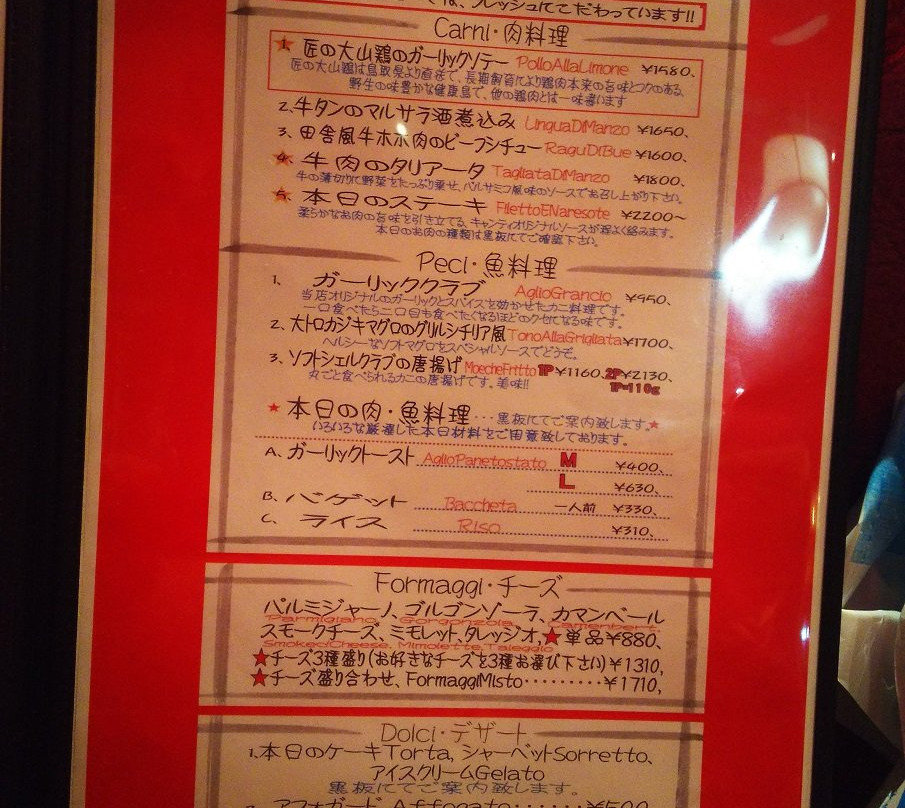 フレッシュにこだわっています!!
Carni・肉料理
1. 匠の大山鶏のガーリックソテー PolloAllaLimone ¥1580、
匠の大山鶏は鳥取県より直送で、長期飼育により鶏肉本来の旨味とコクのある、
野生の味豊かな健康鳥で、他の鶏肉とは一味違います
2. 牛タンのマルサラ酒煮込み LinguaDiManzo ¥1650、
3. 田舎風牛ホホ肉のビーフシチュー RaguDiBue ¥1600、
4. 牛肉のタリアータ TagliataDiManzo ¥1800、
牛の薄切りに野菜をたっぷり乗せ、バルサミコ風味のソースでお召し上がり下さい。
5. 本日のステーキ FilettoENaresote ¥2200〜
柔らかなお肉の旨味を引き立てる、キャンティオリジナルソースが程よく絡みます。
本日のお肉の種類は黒板にてご確認下さい。
Peci・魚料理
1. ガーリッククラブ AglioGrancio ¥950、
当店オリジナルのガーリックとスパイスを効かせたカニ料理です。
一口食べたら二口目も食べたくなるほどのクセになる味です。
2. 大トロカジキマグロのグリルシチリア風 TonoAllaGrigliata ¥1700、
ヘルシーなソフトマグロをスペシャルソースでどうぞ。
3. ソフトシェルクラブの唐揚げ MoecheFritto 1P ¥1160、2P ¥2130、
丸ごと食べられるカニの唐揚げです。美味!! 1P=110g
★本日の肉・魚料理・・・黒板にてご案内致します。★
いろいろな厳選した本日材料をご用意致しております。
A. ガーリックトースト AglioPanetostato M ¥400、
L ¥630、
B. バゲット Baccheta 一人前 ¥330、
C. ライス Riso ¥310、
Formaggi・チーズ
パルミジャーノ、ゴルゴンゾーラ、カマンベール
Parmigiano, Gorgonzola, Camenbert,
スモークチーズ、ミモレット、タレッジオ、★単品¥880、
SmokedCheese, Mimolette, Taleggio
★チーズ3種盛り(お好きなチーズを3種お選び下さい)¥1310,
★チーズ盛り合わせ、FormaggiMisto・・・・・・・・・¥1710,
Dolci・デザート
1. 本日のケーキTorta, シャーベットSorretto、
アイスクリームGelato
黒板にてご案内致します。
アフォガード Affogato・・・・・・¥500